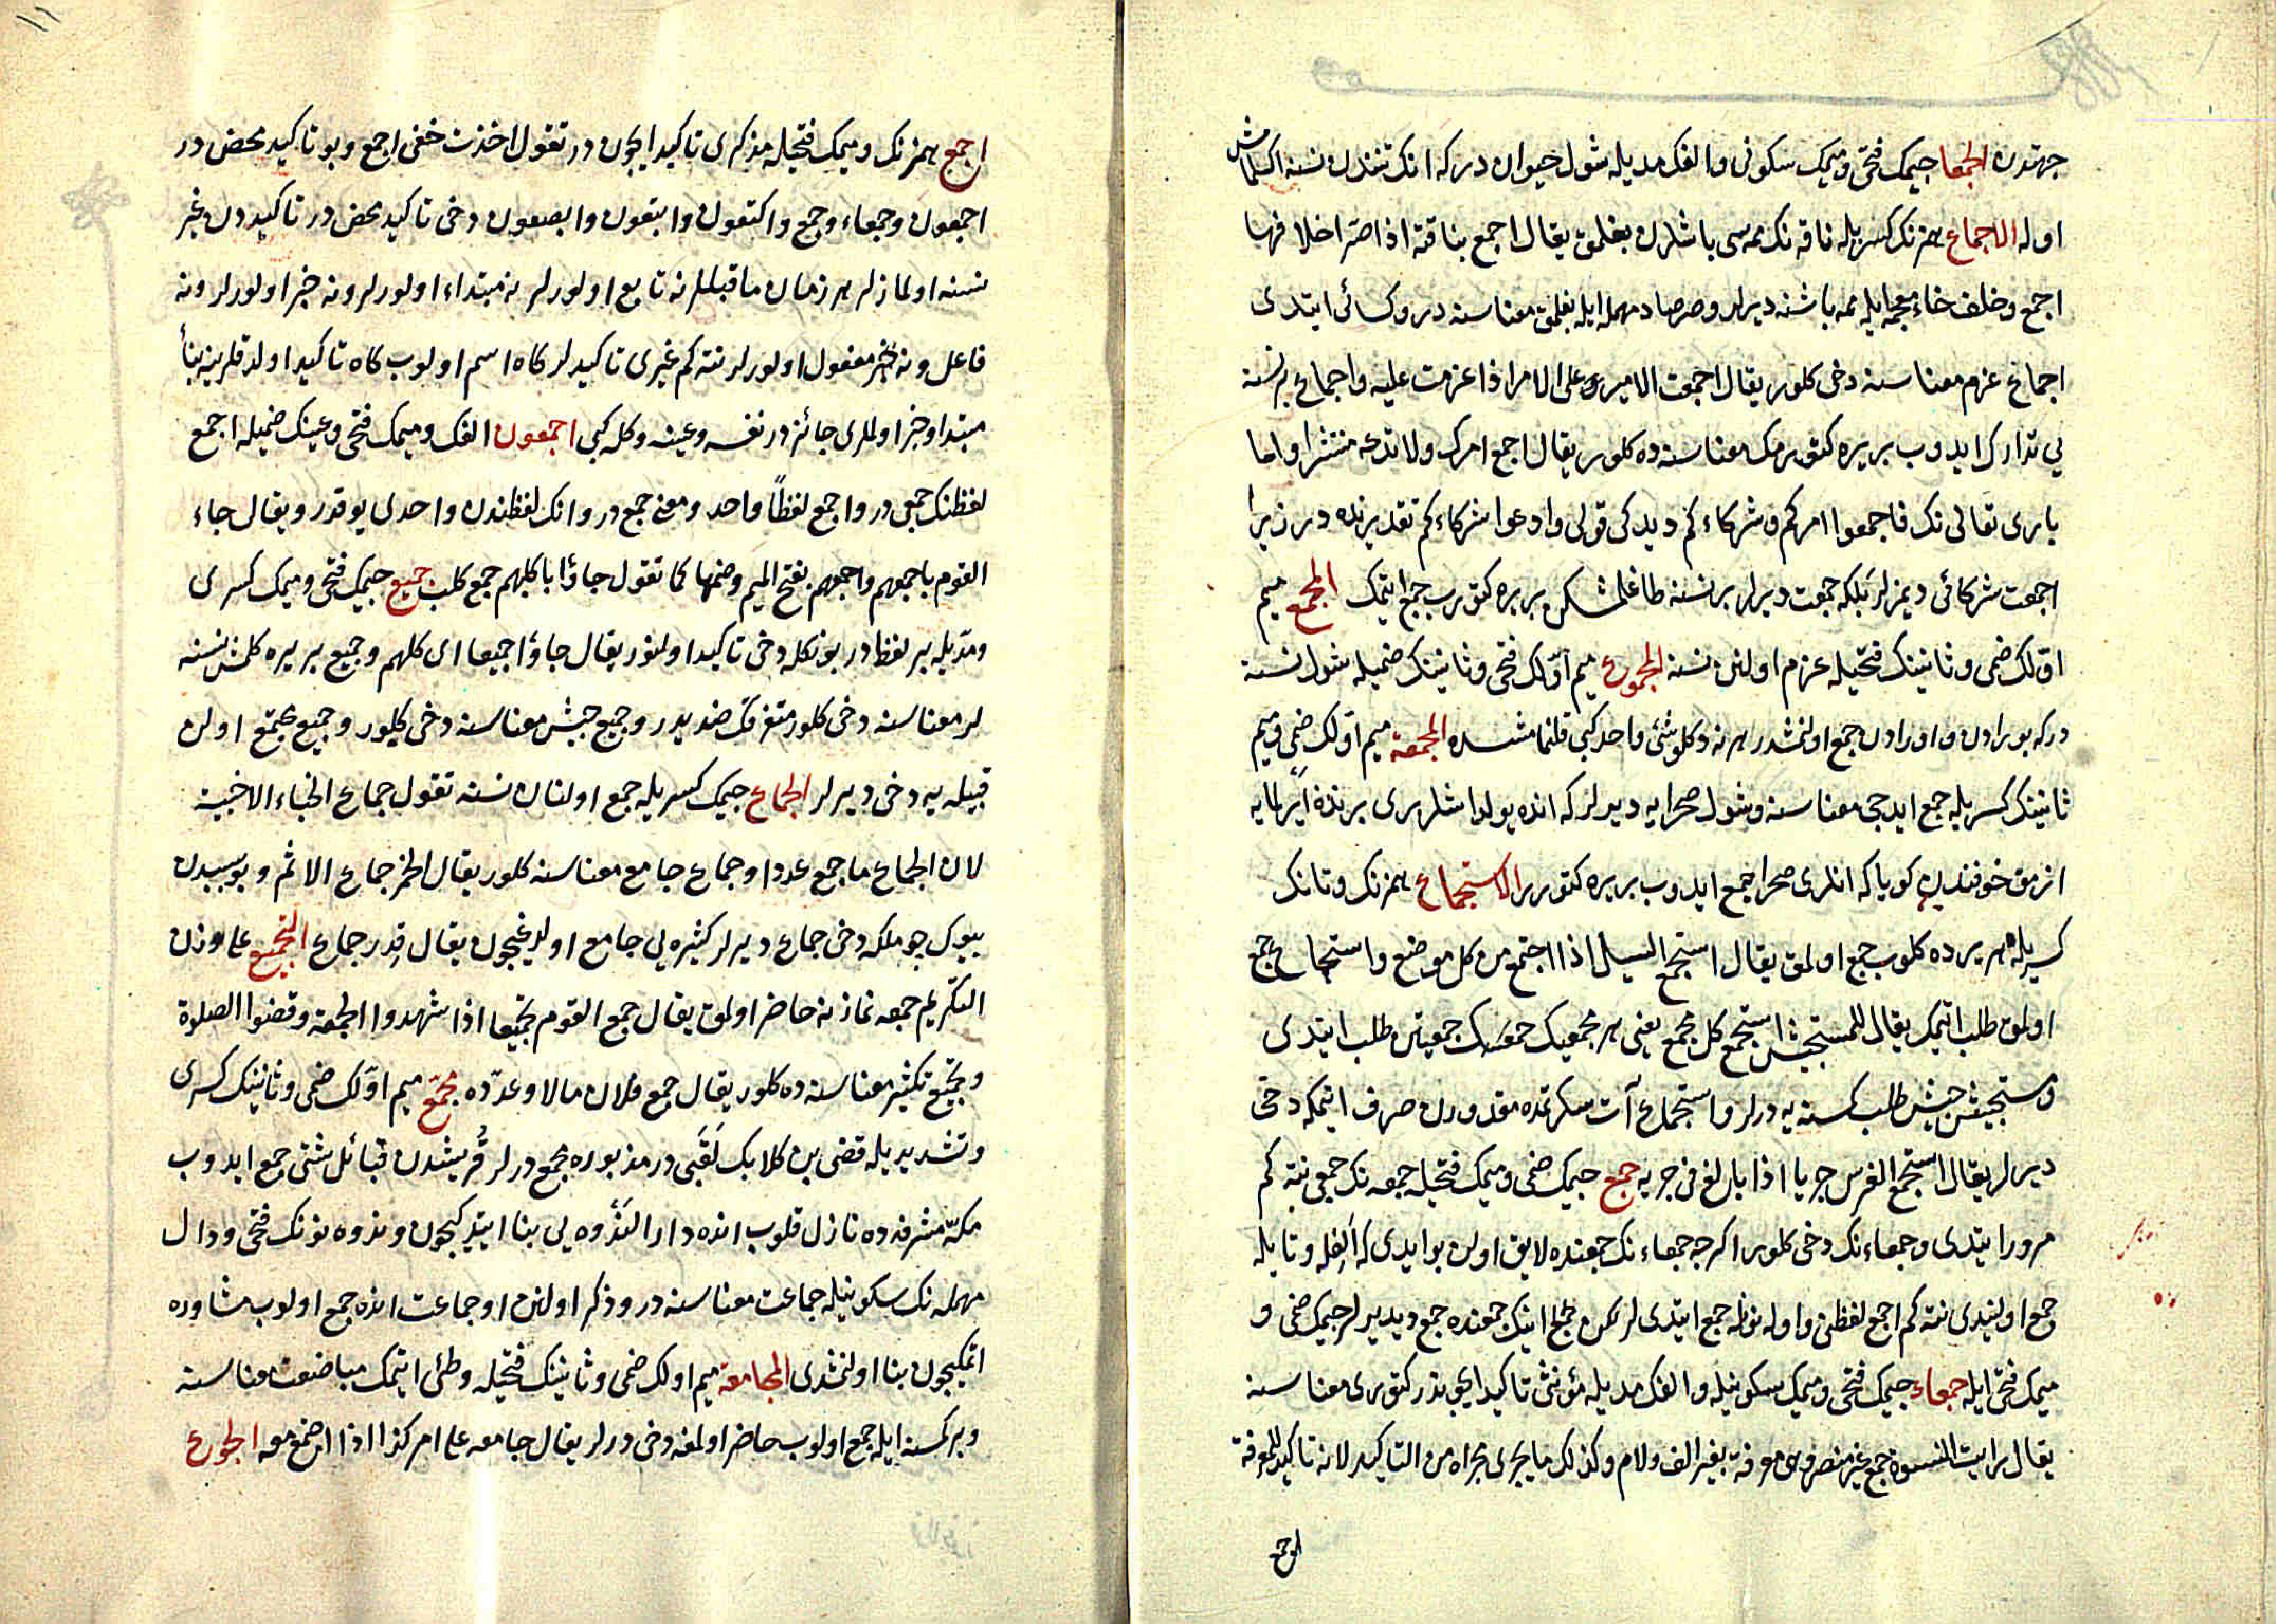 جهتدن الجمعا جيمك فتحى وميمك سكونى والفك مديله شول حيوان دركه انك تنندن نسنه اكسلمامش
اوله الاجماع همزنك كسريله ناقه نك ممه سى باشلرن بغلمق يقال اجمع بناقته اذا صر اخلافها
اجمع وخلف خاء معجمه ايله ممه باشنه ديرلر وصر صاد مهمله ايله بغلمق معناسنه در وكسائى ايتدى
اجماع عزم معناسنه دخى كلور يقال اجمعت الامر وعلى الامر اذا عزمت عليه واجماع بر نسنه
يى تدارك ايدوب بر يره كتورمك معناسنه ده كلور يقال اجمع امرك ولا تدعه منتشرا واما
بارى تعالى نك فاجمعوا امركم وشركاءكم ديدكى قولى وادعوا شركاءكم تقديرنده در زيرا
اجمعت شركائى ديمزلر بلكه جمعت ديرلر بر نسنه طاغلمشكن بر يره كتورب جمع ايتمك المجمع ميم
اولك ضمى وثانينك فتحيله عزم اولنن نسنه المجموع ميم اولك فتحى وثانينك ضميله شول نسنه
دركه بورادن واورادن جمع اولنمشدر هر نه دكلو شئ واحد كبى قلنمامشسه ده المجمعة ميم اولك ضمى وميم
ثانينك كسريله جمع ايديجى معناسنه وشول صحرايه ديرلر كه انده يولداشلر برى برندن ايرلمايه
ازمق خوفندن كويا كه انلرى صحرا جمع ايدوب بر يره كتورر الاستجماع همزنك وتانك
كسريله هر يردن كلوب جمع اولمق يقال استجمع السيل اذا اجتمع من كل موضع واستجماع جمع
اولمق طلب ايتمك يقال للمستجيش استجمع كل مجمع يعنى هر مجمعك جمعيتن طلب ايتدى
ومستجيش جيش طلب كسنه يه درلر واستجماع آت سكرتمده مقدورن صرف ايتمكه دخى
ديرلر يقال استجمع الفرس جريا اذا بالغ فى جريه جمع جيمك ضمى وميمك فتحيله جمعه نك جمعى نته كم
مرور ايتدى وجمعاء نك دخى كلور اكرچه جمعاء نك جمعنده لايق اولن بو ايدى كه الفله وتايله
جمع اولنيدى نته كم اجمع لفظن واوله نونله جمع ايتديلر لكن جمعاء نك جمعنده جمع ديديلر جيمك ضمى و
ميمك فتحى ايله جمعاء جيمك فتحى وميمك سكونيله والفك مديله مؤنثى تاكيد ايچوندر كتورى معناسنه
يقال رايت النسوة جمع غير منصرف معرفة بغير الف ولام وكذلك ما يجرى مجراه من التاكيد لانه تاكيد للمعرفة
اجمع
اجمع همزنك وميمك فتحيله مذكرى تاكيد ايچون در تقول اخذت حقى اجمع وبو تاكيد محض در
اجمعون وجمعاء وجمع واكتعون وابتعون وابصعون دخى تاكيد محض در تاكيددن غير
نسنه اولمازلر هر زمان ماقبللرنه تابع اولورلر نه مبتداء اولورلر ونه خبر اولورلر ونه
فاعل ونه مفعول اولورلر نته كم غيرى تاكيدلر كاه اسم اولوب كاه تاكيد اولدقلرينه بناء
مبتدا وخبر اولملرى جائز در نفسه وعينه وكله كبى اجمعون الفك وميمك فتحى وعينك ضميله اجمع
لفظنك جمعى در واجمع لفظاً واحد ومعنى جمع در وانك لفظندن واحدى يوقدر ويقال جاء
القوم باجمعهم واجمعهم بفتح الميم وضمها كما تقول جاؤا باكلبهم جمع كلب جميع جيمك فتحى وميمك كسرى
ومديله بر لفظدر بونكله دخى تاكيد اولنور يقال جاؤا جميعا اى كلهم وجميع بر يره كلمش نسنه
لر معناسنه دخى كلور متفرقك ضديدر وجميع جيش معناسنه دخى كلور وجميع مجتمع اولن
قبيله يه دخى ديرلر الجماع جيمك كسريله جمع اولنان نسنه تقول جماع الخباء الاخبية
لان الجماع ما جمع عددا وجماع جامع معناسنه كلور يقال الخمر جماع الاثم وبو سببدن
بيوك چوملكه دخى جماع ديرلر كثيره يى جامع اولديغيچون يقال قدر جماع التجميع على وزن
التكريم جمعه نمازنه حاضر اولمق يقال جمع القوم تجميعا اذا شهدوا الجمعة وقضوا الصلوة
وتجميع تكثير معناسنه ده كلور يقال جمع فلان مالا وعدده مجمع ميم اولك ضمى وثانينك كسرى
وتشديديله قصى بن كلابك لقبى در مزبوره مجمع درلر قريشدن قبائل شتى جمع ايدوب
مكه مشرفه ده نازل قلوب انده دار الندوه يى بنا ايتديكيچون وندوه نونك فتحى ودال
مهمله نك سكونيله جماعت معناسنه در وذكر اولنن او جماعت انده جمع اولوب مشاوره
اتمكيچون بنا اولنمشدى المجامعة ميم اولك ضمى وثانينك فتحيله وطئى ايتمك مباضعت معناسنه
وبر كسنه ايله جمع اولوب حاضر اولمغه دخى درلر يقال جامعه على امر كذا اذا اجتمع معه الجوع